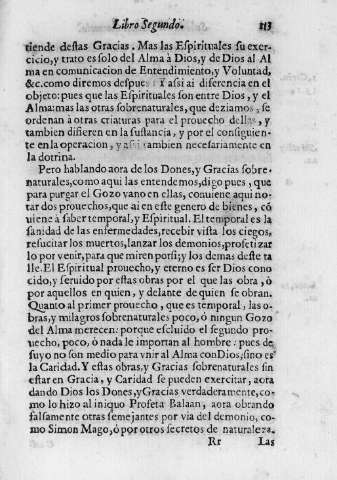 Libro Segundo. 313
tiende destas Gracias. Mas las Espirituales su exer-
cicio, y trato es solo del Alma à Dios, y de Dios al Al
ma en comunicacion de Entendimiento, y Voluntad,
&c. como diremos despues: Y assi ai diferencia en el
objeto: pues que las Espirituales son entre Dios, y el
Alma: mas las otras sobrenaturales, que deziamos, se
ordenan à otras criaturas para el prouecho dellas, y
tambien difieren en la sustancia, y por el consiguien-
te en la operacion, y assi tambien necesariamente en
la dotrina.
Pero hablando aora de los Dones, y Gracias sobre-
naturales, como aqui las entendemos, digo pues, que
para purgar el Gozo vano en ellas, conuiene aqui no-
tar dos prouechos, que ai en este genero de bienes, cō
uiene à saber temporal, y Espiritual. El temporal es la
sanidad de las enfermedades, recebir vista los ciegos,
resucitar los muertos, lanzar los demonios, profetizar
lo por venir, para que miren por si; y los demas deste ta
lle. El Espiritual prouecho, y eterno es ser Dios cono
cido, y seruido por estas obras por el que las obra, ò
por aquellos en quien, y delante de quien se obran.
Quanto al primer prouecho, que es temporal, las o-
bras, y milagros sobrenaturales poco, ò ningun Gozo
del Alma merecen: porque escluido el segundo pro-
uecho, poco, ò nada le importan al hombre: pues de
suyo no son medio para vnir al Alma con Dios, sino es
la Caridad. Y estas obras, y Gracias sobrenaturales sin
estar en Gracia, y Caridad se pueden exercitar, aora
dando Dios los Dones, y Gracias verdaderamente, co-
mo lo hizo al iniquo Profeta Balaan, aora obrando
falsamente otras semejantes por via del demonio, co-
mo Simon Mago, ò por otros secretos de naturaleza.
Rr Las